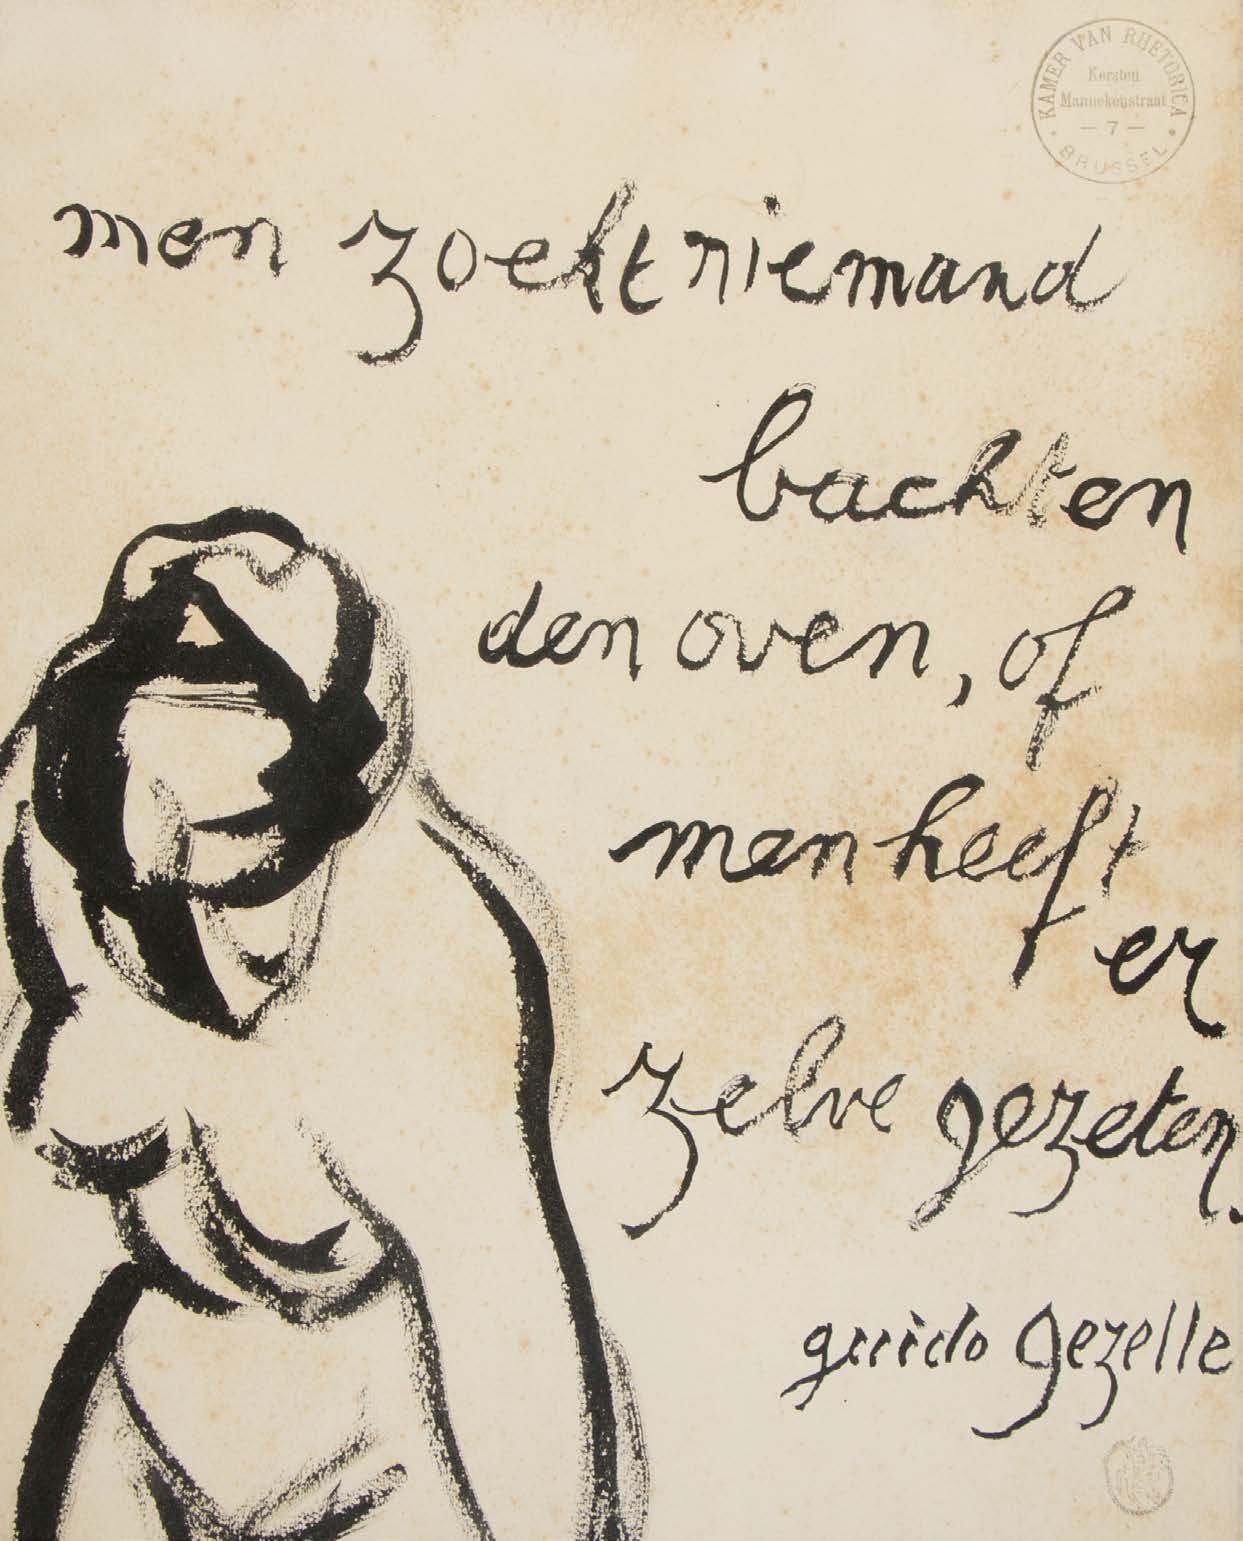 KAMER VAN RHETORICA
Kersten
Mannekenstraat
— 7 —
• BRUSSEL •
men zoekt niemand
bachten
den oven, of
men heeft
er
zelve gezeten.
guido gezelle